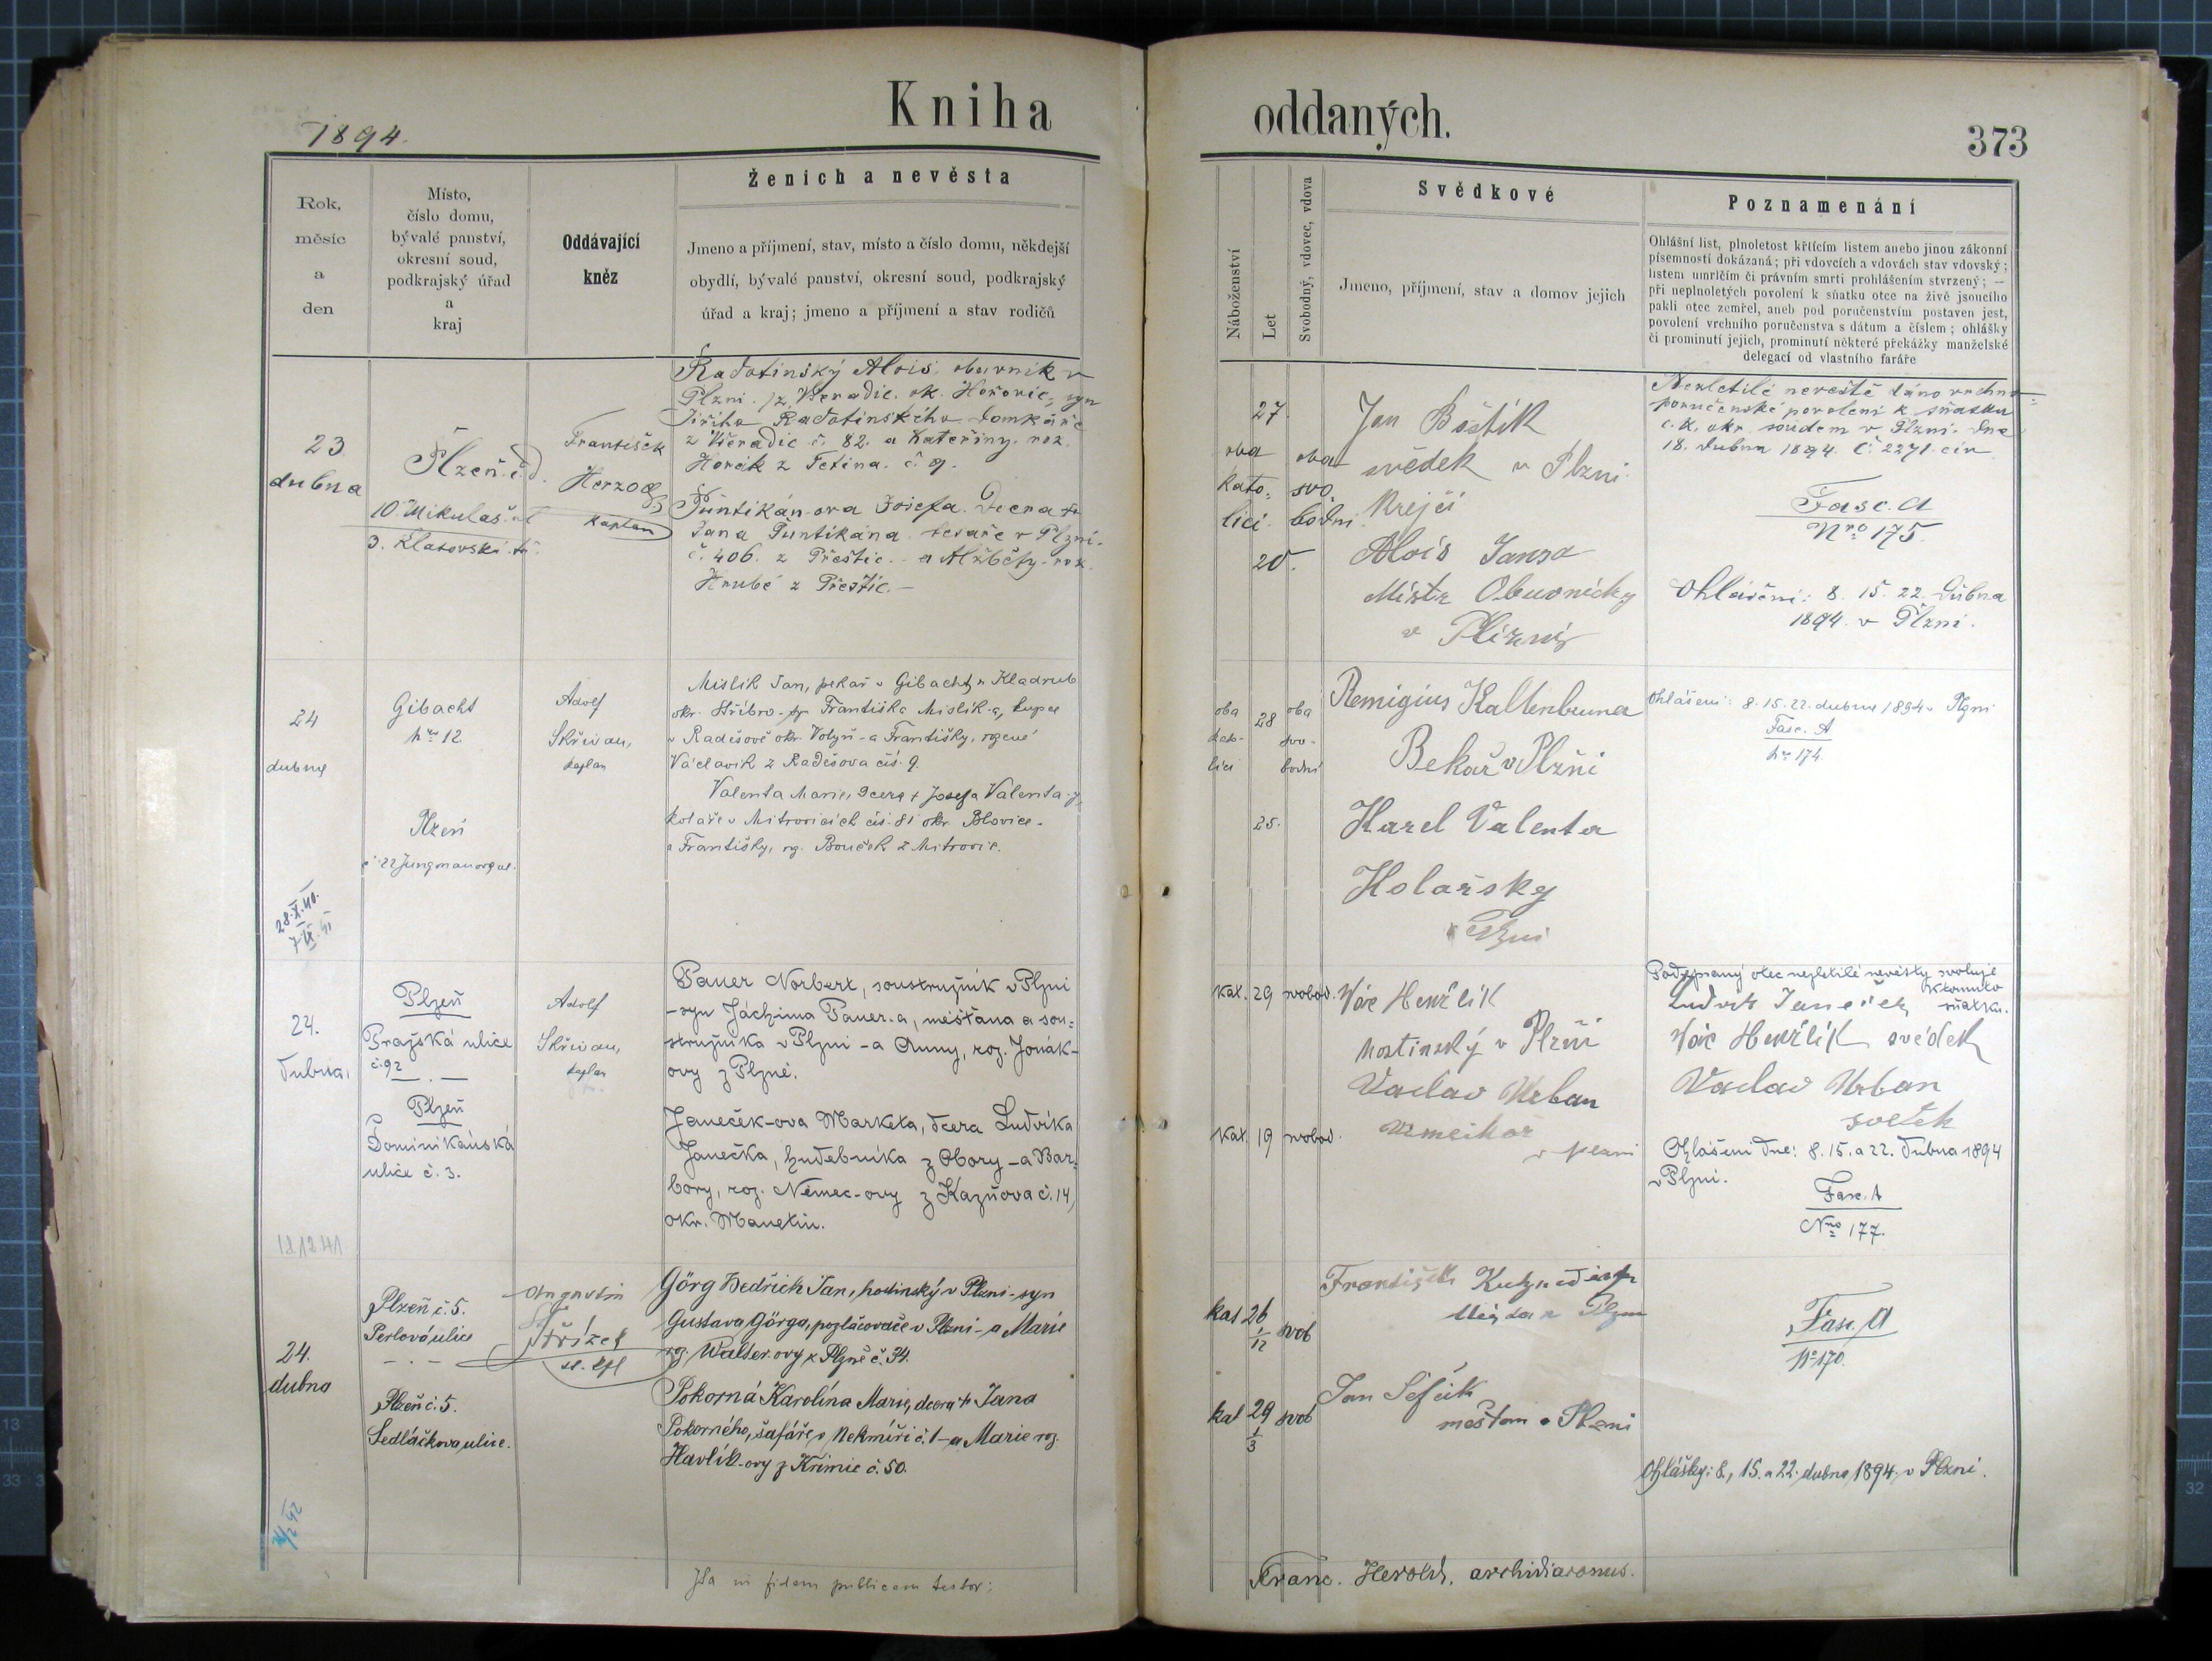 1894.
Kniha oddaných.
373
Rok,
měsíc
a
den
Místo,
číslo domu,
bývalé panství,
okresní soud,
podkrajský úřad
a
kraj
Oddávající
kněz
Ženich a nevěsta
Jmeno a příjmení, stav, místo a číslo domu, někdejší
obydlí, bývalé panství, okresní soud, podkrajský
úřad a kraj; jmeno a příjmení a stav rodičů
Náboženství
Let
Svobodný, vdovec, vdova
Svědkové
Jmeno, příjmení, stav a domov jejich
Poznamenání
Ohlášní list, plnoletost křtícím listem anebo jinou zákonní
písemností dokázaná; při vdovcích a vdovách stav vdovský;
listem umrlčím či právním smrti prohlášením stvrzený; —
při neplnoletých povolení k sňatku otce na živě jsoucího
pakli otec zemřel, aneb pod poručenstvím postaven jest,
povolení vrchního poručenstva s dátum a číslem; ohlášky
či prominutí jejich, prominutí některé překážky manželské
delegací od vlastního faráře
23
dubna
Plzeň č. d.
10. Mikulaš. ul
3. Klatovská tř.
František
Herzog
kaplan
Radotinský Alois, obuvník v
Plzni z Všeradic, ok. Hořovic, syn
Jiřího Radotinského domkáře
z Všeradic č. 82. a Kateřiny roz.
Horák z Tetína. č. 9.
Puntikán-ova Josefa. Dcera †
Jana Puntikána tesaře v Plzni.
č. 406. z Přeštic. - a Alžběty - roz.
Hrubé z Přeštic. -
27.
oba
kato=
lící.
oba
svo.
bodni.
20.
Jan Boštík
svědek v Plzni.
Krejčí
Alois Jansa
Mistr Obuvnický
v Plzni
Nezletilé nevěstě dáno vrchno=
poručenské povolení k sňatku
c. k. okr. soudem v Plzni. dne
18. dubna 1894. č. 2271. civ
Fasc. A
Nro 175.
Ohlášení: 8. 15. 22. Dubna
1894. v Plzni.
24
dubna
Gibacht
nro 12
Plzeň
č. 22 Jungmanova ul.
28.X.40.
7.IX.41
Adolf
Skřivan,
kaplan
Mislik Jan, pekař v Gibachtu Kladrub
okr. Stříbro - syn Františka Mislik-a, kupce
v Radešově okr. Volyň - a Františky, rozené
Václavík z Radešova čís. 9.
Valenta Marie, dcera † Josefa Valenta-y,
kolaře v Mitrovicích čís. 81 okr. Blovice -
a Františky, rz. Bouček z Mitrovic.
oba
kato-
líci
28
oba
svo-
bodni
25.
Remigius Kaltenbruner
Bekař v Plzni
Karel Valenta
Kolařsky
v Plzni
Ohlášení: 8. 15. 22. dubna 1894 v Plzni
Fasc. A
nro 174.
24.
dubna,
Plzeň
Pražská ulice
č. 92
Plzeň
Dominikánská
ulice č. 3.
12.12.41
Adolf
Skřivan,
kaplan
Pauer Norbert, soustružník v Plzni
- syn Jáchima Pauer-a, měšťana a sou=
stružníka v Plzni - a Anny, roz. Jonák-
ovy z Plzně.
Janeček-ova Marketa, dcera Ludvíka
Janečka, hudebníka z Obory - a Bar=
bory, roz. Němec-ovy z Kaznova č. 14,
okr. Manetin.
kat. 29 svobod.
kat. 19 svobod.
Vác Henžlík
hostinský v Plzni
Vaclav Urban
v Plzni
Podepsaný otec nezletilé nevěsty svoluje
k tomuto
Ludvík Janeček sňatku.
Vác Henžlík svědek
Vaclav Urban
svetek
Ohlášení dne: 8. 15. a 22. dubna 1894
v Plzni.
Fasc. A
Nro 177.
24.
dubna
Plzeň č. 5.
Perlová ulice
Plzeň č. 5.
Sedláčkova ulice.
Augustin
Střízek
Görg Bedřich Jan, hodinský v Plzni - syn
Gustava Görga, pozlačovače v Plzni - a Marie
rz. Walter-ovy z Plzně č. 34.
Pokorná Karolína Marie, dcera † Jana
Pokorného, šafáře v Nekmíři č. 1 - a Marie roz.
Havlík-ovy z Křimic č. 50.
kat 26 1/12 svob
kat 29 1/3 svob
František
v Plzni
Jan
mešťan v Plzni
Fasc. A
No 170.
Ohlášky: 8., 15. a 22. dubna 1894. v Plzni.
Ita in fidem publicam testor:
Franc. Herold, archidiaconus.